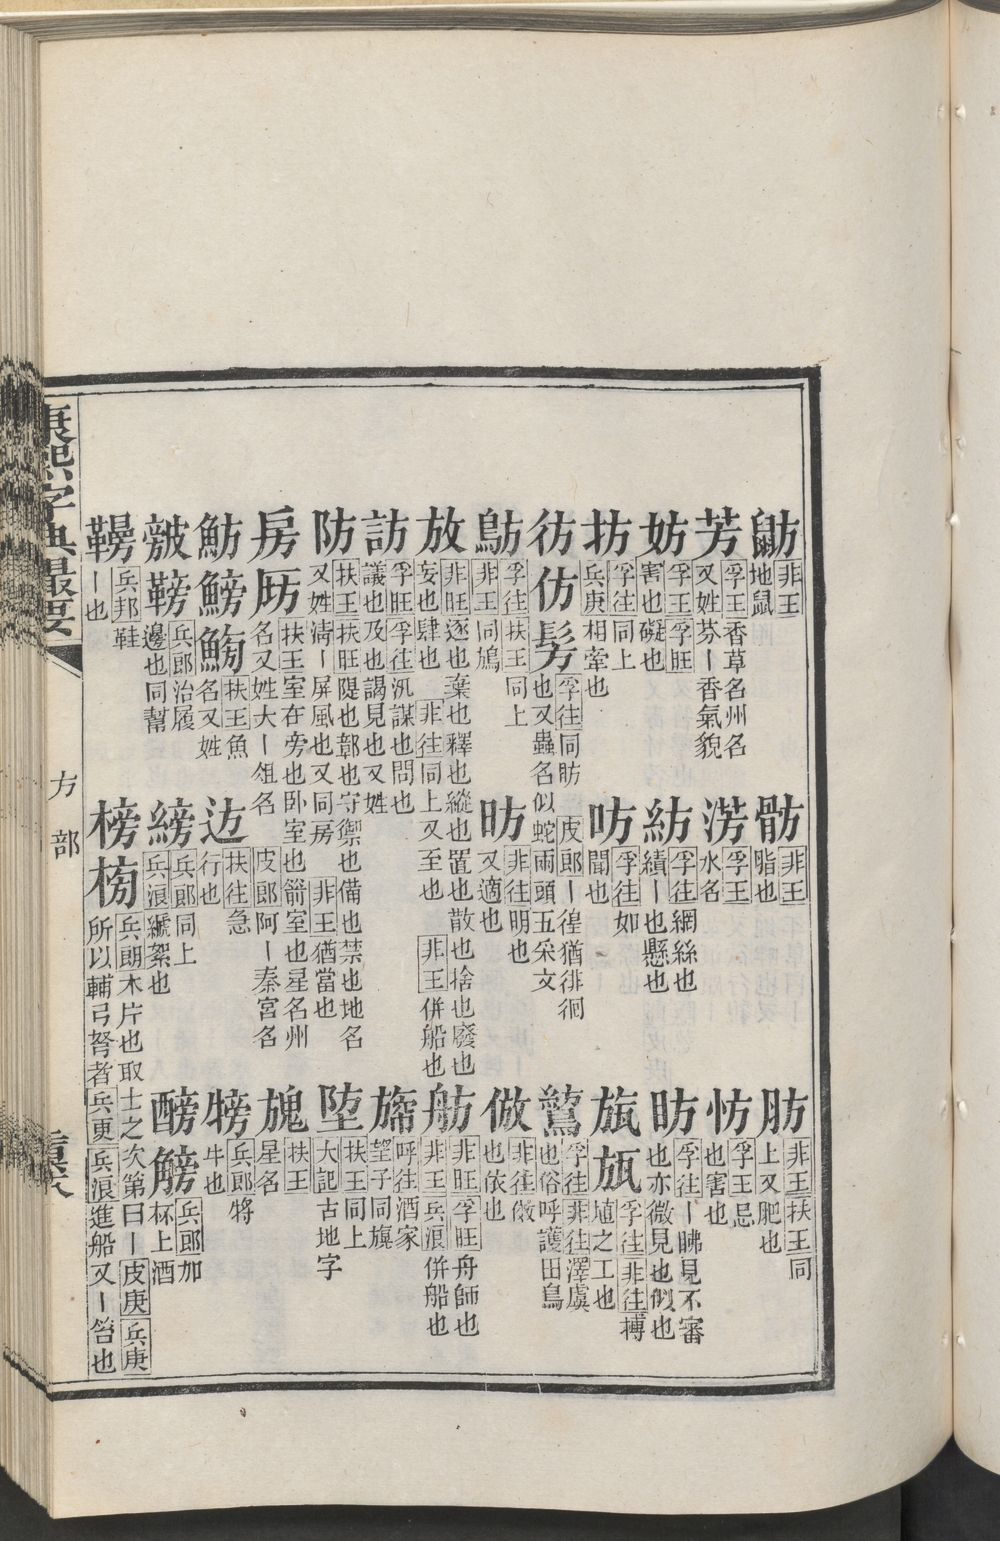 鼢非王地鼠 骯非王脂也 肪非王扶王同上又肥也
芳孚王香草名州名又姓芬ー香氣貌 淓孚王水名 㤃孚王忌也害也
妨孚王孚旺害也礙也 紡孚往網絲也績ー也懸也 昉孚往ー睎見不審也亦微見也似也
坊孚往同上兵庚相牽也 㕫孚往如聞也 瓬孚往非往摶埴之工也
彷仿髣孚往同肪也又蟲名似蛇兩頭五采文皮郎ー徨猶徘徊 鶭孚往非往澤虞也俗呼護田鳥
鳭孚往扶王同上非王同鳩 昉非往明也又適也 倣非往傚也依也
放非旺逐也棄也釋也縱也置也散也捨也廢也妄也肆也非往同上又至也非王併船也 舫非旺孚旺舟師也非王兵浪併船也
訪孚旺孚往汎謀也問也議也及也謁見也又姓 呼往酒家望子同旗
防扶王扶旺隄也鄣也守禦也備也禁也地名又姓清ー屏風也又同房非王猶當也 埅扶王同上大記古地字
房㕫扶王室在旁也卧室也箭室也星名州名又姓大ー俎名皮郎阿ー秦宮名 扶王星名
魴鰟扶王魚名又姓 扶往急行也 兵郎將牛也
兵郎治履邊也同幫 綁兵郎同上兵浪纊絮也 兵郎加杯上酒
兵邦鞋ー也 榜兵朗木片也取士之次第曰ー皮庚兵庚所以輔弓弩者兵更兵浪進船又ー笞也
康熙字典最要
方部